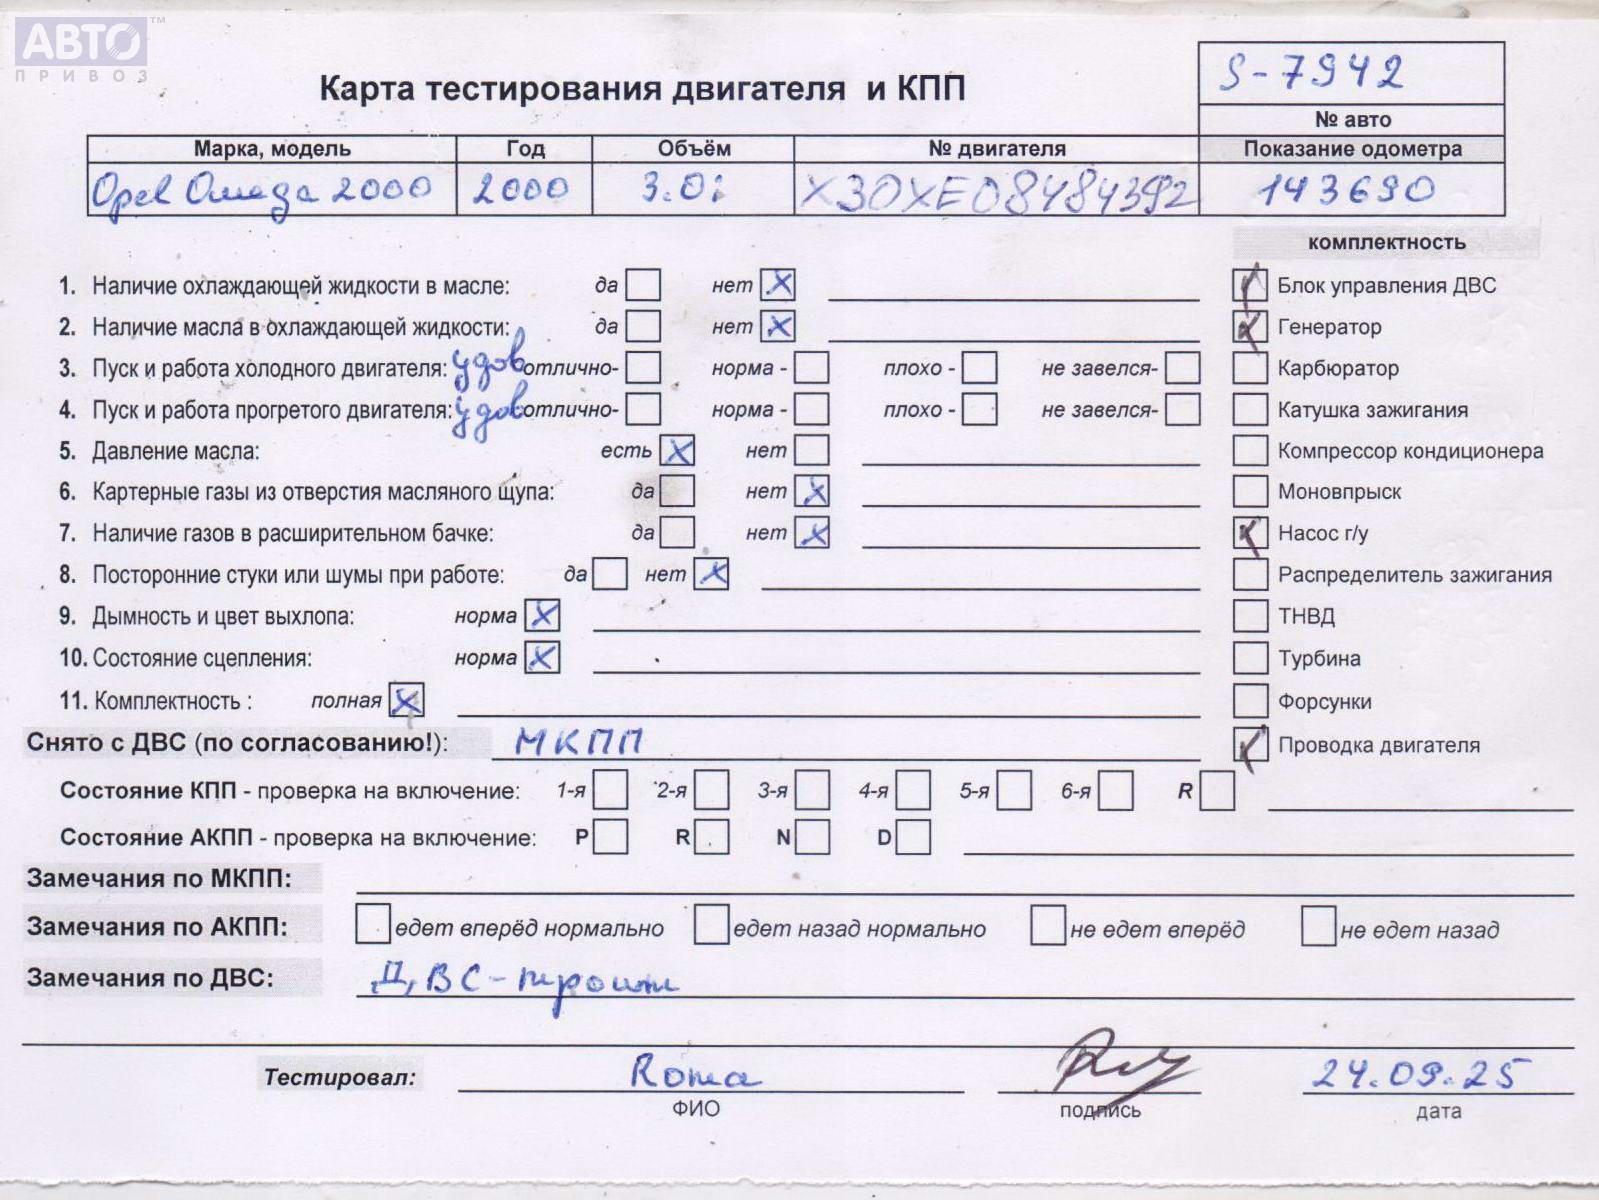 АВТО™
ПРИВОЗ
S-7942
Карта тестирования двигателя и КПП
№ авто
Марка, модель Год Объём № двигателя Показание одометра
Opel Омега 2000 2000 3.0i X30XE08484392 143690
комплектность
1. Наличие охлаждающей жидкости в масле: да нет X Блок управления ДВС
2. Наличие масла в охлаждающей жидкости: да нет X Генератор
3. Пуск и работа холодного двигателя: удов отлично- норма - плохо - не завелся- Карбюратор
4. Пуск и работа прогретого двигателя: удов отлично- норма - плохо - не завелся- Катушка зажигания
5. Давление масла: есть X нет Компрессор кондиционера
6. Картерные газы из отверстия масляного щупа: да нет X Моновпрыск
7. Наличие газов в расширительном бачке: да нет X Насос г/у
8. Посторонние стуки или шумы при работе: да нет X Распределитель зажигания
9. Дымность и цвет выхлопа: норма X ТНВД
10. Состояние сцепления: норма X Турбина
11. Комплектность : полная X Форсунки
Снято с ДВС (по согласованию!): МКПП Проводка двигателя
Состояние КПП - проверка на включение: 1-я 2-я 3-я 4-я 5-я 6-я R
Состояние АКПП - проверка на включение: P R N D
Замечания по МКПП:
Замечания по АКПП: едет вперёд нормально едет назад нормально не едет вперёд не едет назад
Замечания по ДВС: ДВС-троит
Тестировал: Roma 24.09.25
ФИО подпись дата